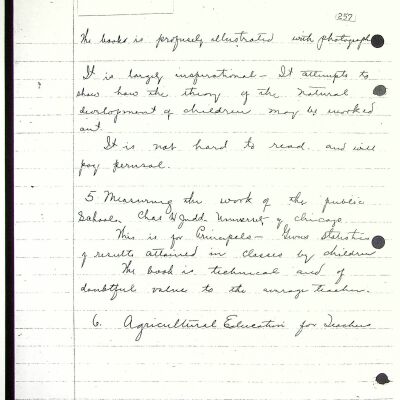 257
The books is profusely illustrated with photograph
It is largely inspirational - It attempts to
show how the theory of the natural
development of children may be worked
out.
It is not hard to read and will
pay perusal.
5 Measuring the work of the public
Schools. Chas H Judd Universit of chicago.
This is for Principals - Gives statistics
of results attained in classes by children
The book is technical and of
doubtful value to the average teacher.
6. Agricultural Education for Teachers